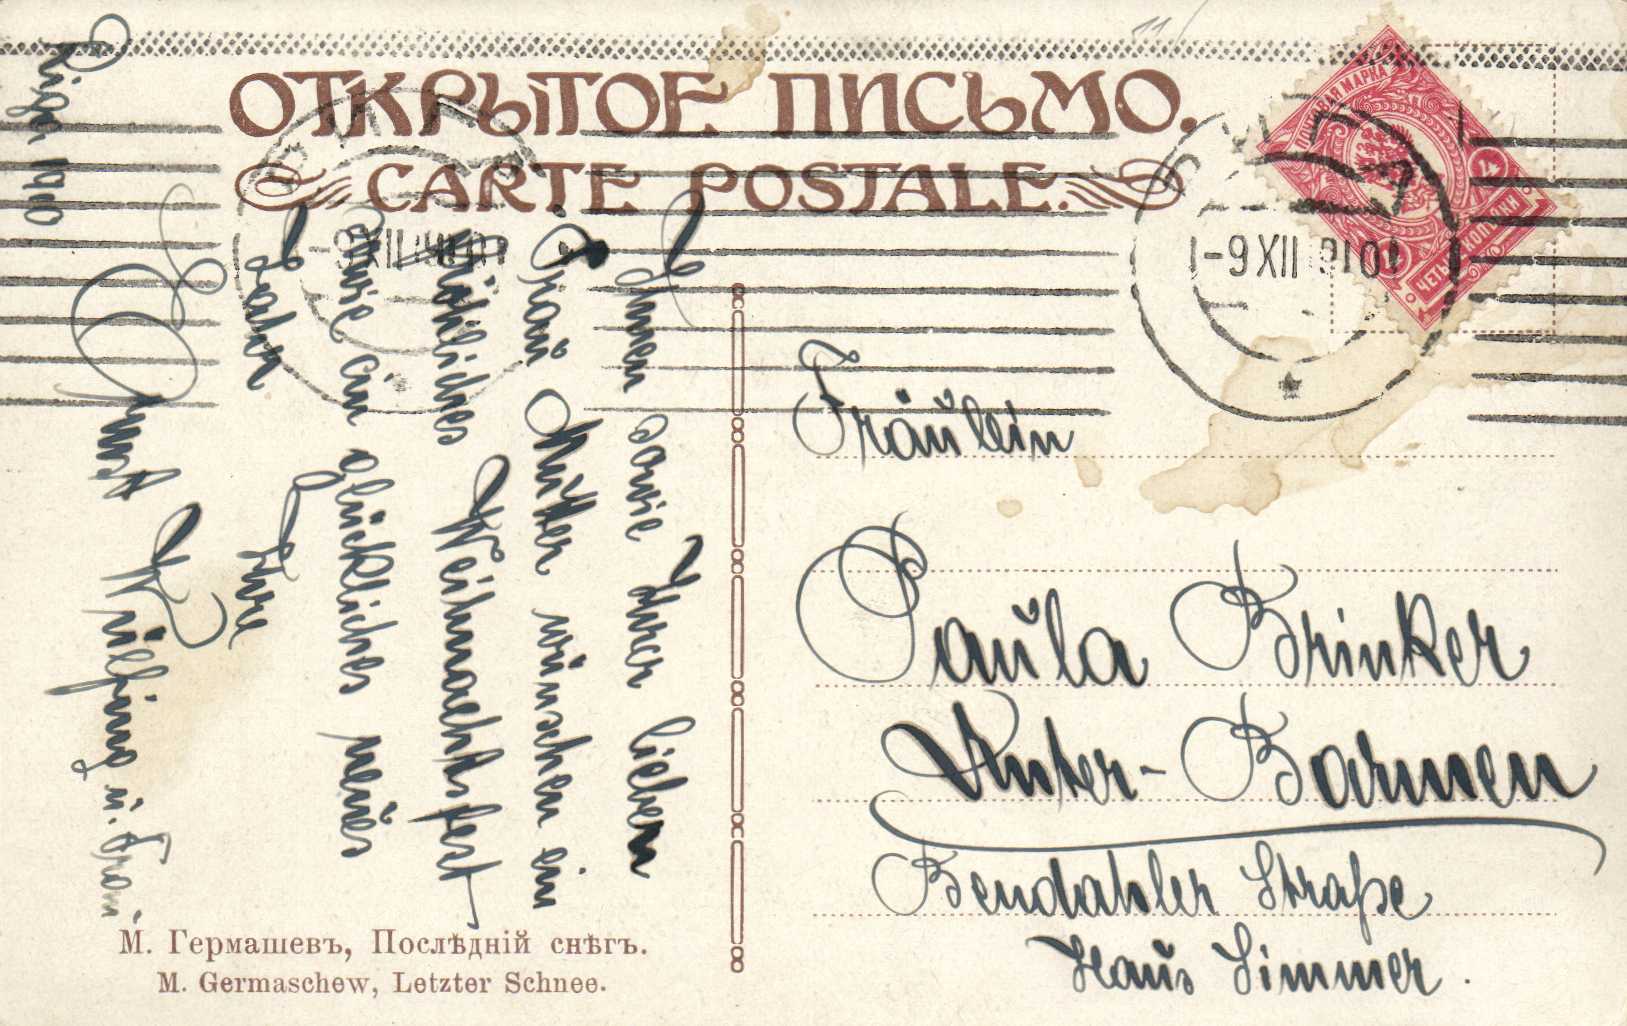 ОТКРЫТОЕ ПИСЬМО.
CARTE POSTALE.
Riga 1910
Ihnen sowie Ihrer lieben
Frau Mutter wünschen ein
fröhliches Weihnachtsfest
sowie ein glückliches neues
Jahr
Ihre
Ernst Wülfing u. Frau
-9 XII 1910
-9 XII 910
ПОЧТОВАЯ МАРКА
4
ЧЕТЫРЕ КОПѢЙКИ
Fräulein
Paula Brinker
Unter-Barmen
Bendahler Straße
Haus Simmer.
М. Гермашевъ, Послѣднiй снѣгъ.
M. Germaschew, Letzter Schnee.